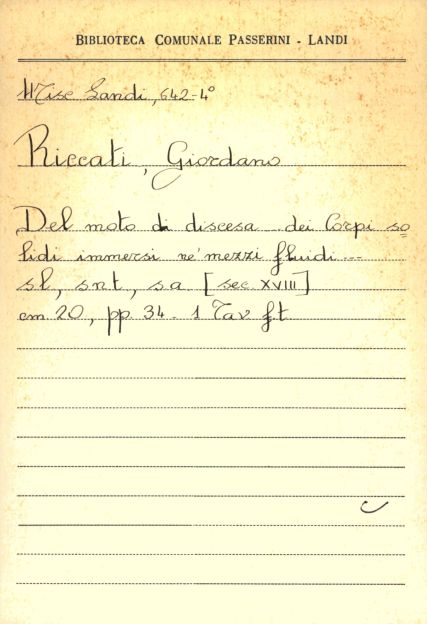 BIBLIOTECA COMUNALE PASSERINI - LANDI
Misc Landi, 642-4°
Riccati, Giordano
Del moto di discesa ... dei Corpi so=
lidi immersi ne' mezzi fluidi ...
sl, snt, sa [sec. XVIII]
cm 20, pp. 34 - 1 Tav ft